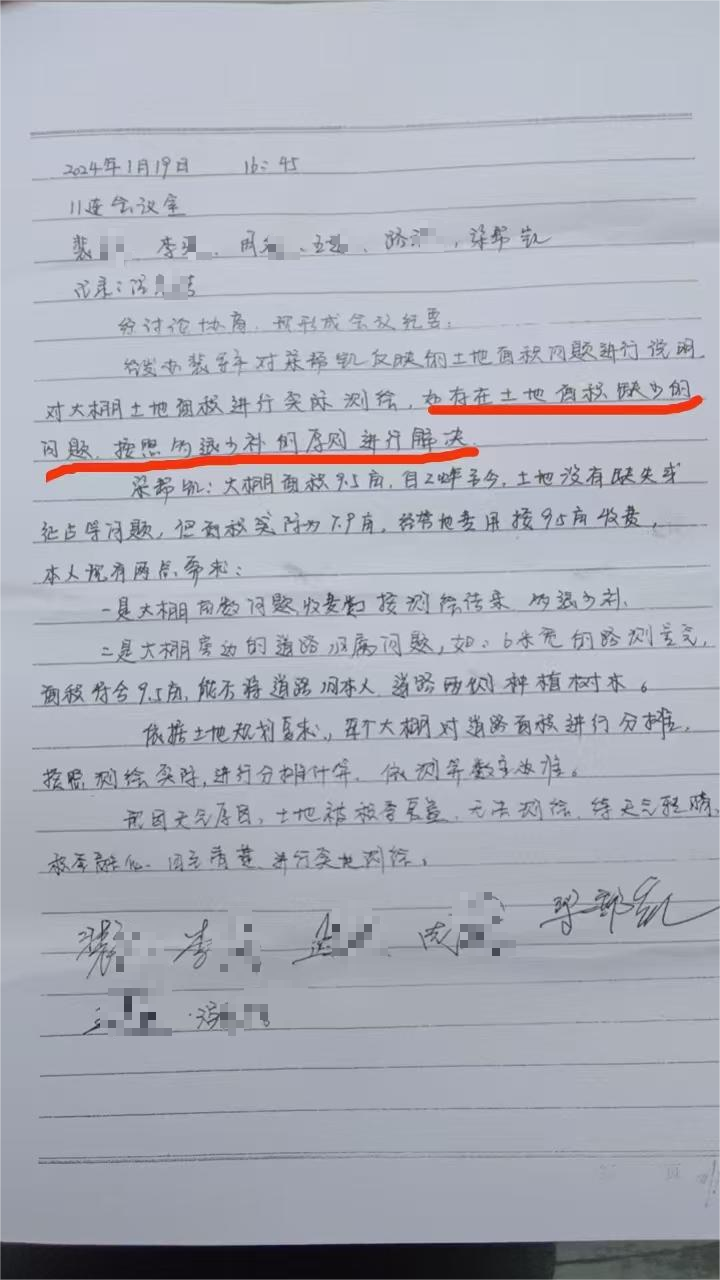 2024年1月19日 16:45
11连会议室
裴 、李 、周 、王 、路 ,梁帮凯
记录:冯
经讨论协商,现形成会议纪要:
经发办裴 对梁帮凯反映的土地面积问题进行说明
对大棚土地面积进行实际测绘,如存在土地面积缺少的
问题,按照多退少补的原则进行解决.
梁帮凯:大棚面积9.5亩,自 至今,土地没有缺失或
征占等问题,但面积实际为7.9亩,经营地费用按9.5亩收费,
本人现有两点要求:
一是大棚亩数问题,收费 按测绘结果 多退少补.
二是大棚旁边的道路归属问题,如:6米宽的路测量完,
面积符合9.5亩,能否将道路归本人,道路两侧种植树木。
依据土地规划要求,每个大棚对道路面积进行分摊,
按照测绘实际,进行分摊计算,依测算数字为准。
现因天气原因,土地被被雪覆盖,无法测绘,待天气转晴,
被雪融化、 ,进行实地测绘。
裴 李 周 梁帮凯
王 冯